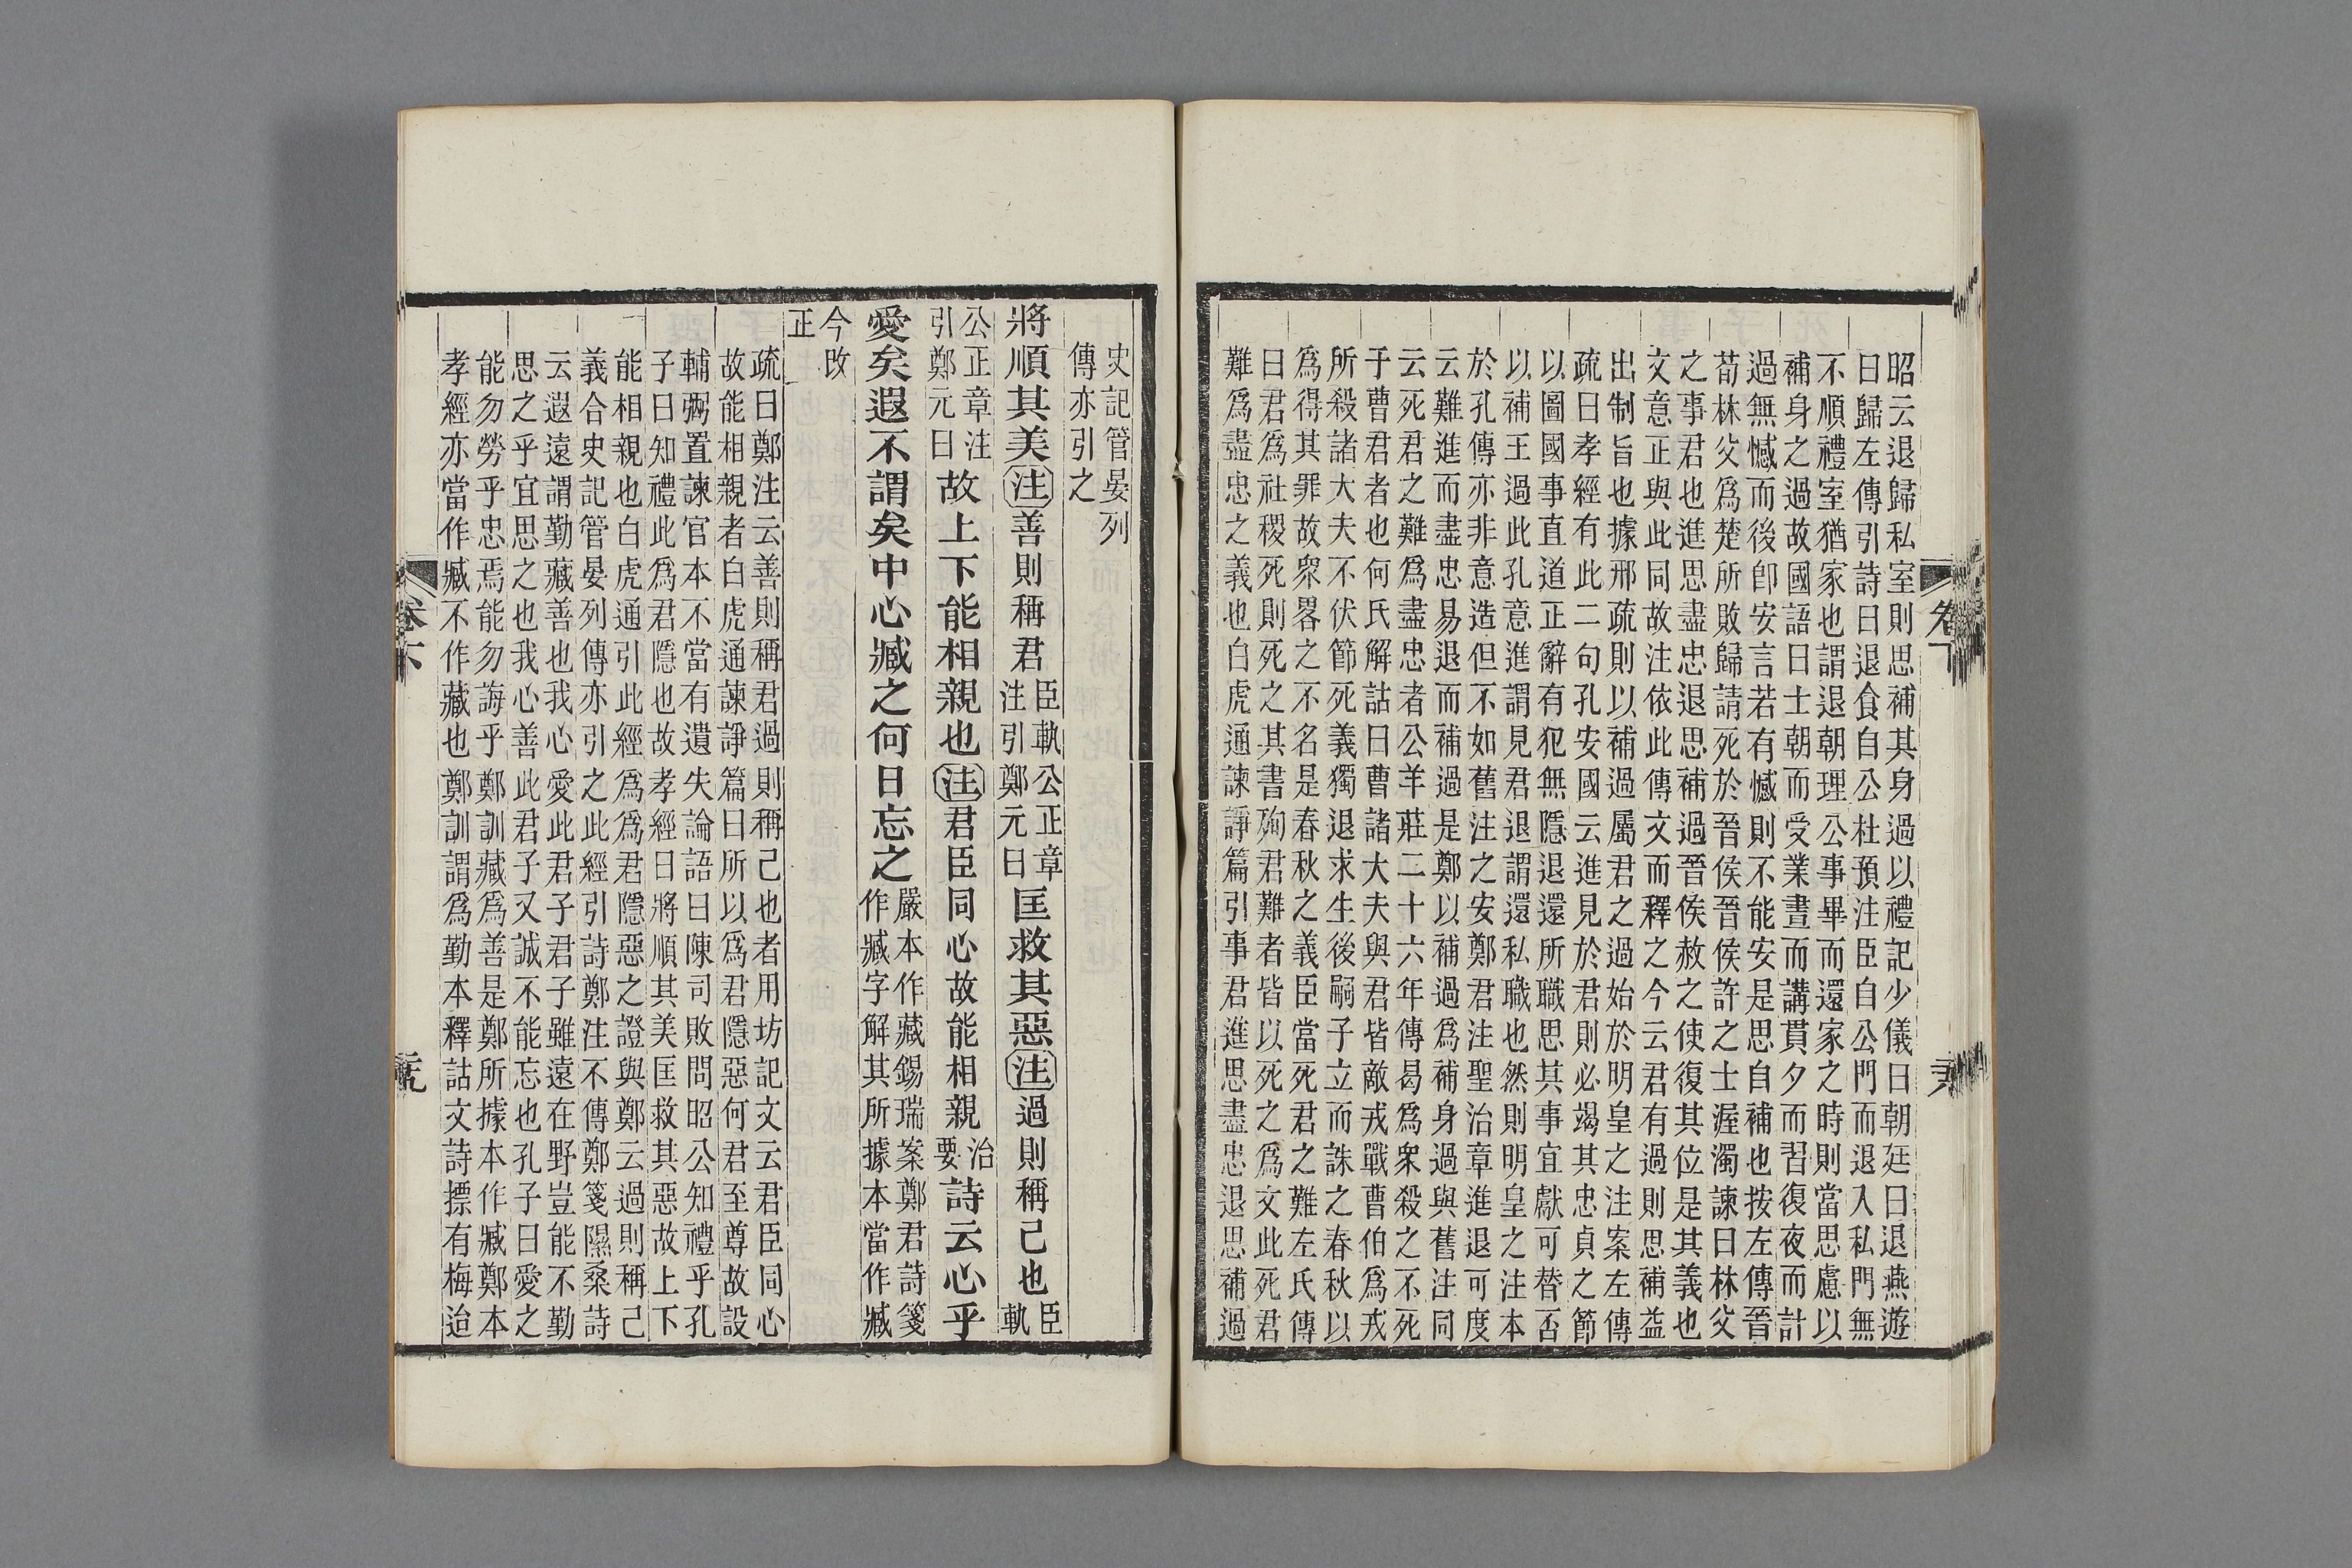 昭云退歸私室則思補其身過以禮記少儀曰朝廷曰退燕遊
曰歸左傳引詩曰退食自公杜預注臣自公門而退入私門無
不順禮室猶家也謂退朝理公事畢而還家之時則當思慮以
補身之過故國語曰士朝而受業晝而講貫夕而習復夜而計
過無憾而後卽安言若有憾則不能安是思自補也按左傳晉
荀林父爲楚所敗歸請死於晉侯晉侯許之士渥濁諫曰林父
之事君也進思盡忠退思補過晉侯赦之使復其位是其義也
文意正與此同故注依此傳文而釋之今云君有過則思補益
出制旨也據邢疏則以補過屬君之過始於明皇之注案左傳
疏曰孝經有此二句孔安國云進見於君則必竭其忠貞之節
以圖國事直道正辭有犯無隱退還所職思其事宜獻可替否
以補王過此孔意進謂見君退謂還私職也然則明皇之注本
於孔傳亦非意造但不如舊注之安鄭君注聖治章進退可度
云難進而盡忠易退而補過是鄭以補過爲補身過與舊注同
云死君之難爲盡忠者公羊莊二十六年傳曷爲衆殺之不死
于曹君者也何氏解詁曰曹諸大夫與君皆敵戎戰曹伯爲戎
所殺諸大夫不伏節死義獨退求生後嗣子立而誅之春秋以
爲得其罪故衆畧之不名是春秋之義臣當死君之難左氏傳
曰君爲社稷死則死之其書殉君難者皆以死之爲文此死君
難爲盡忠之義也白虎通諫諍篇引事君進思盡忠退思補過
卷下
史記管晏列
傳亦引之
將順其美注善則稱君臣軌公正章注引鄭元曰匡救其惡注過則稱己也臣軌
公正章注引鄭元曰故上下能相親也注君臣同心故能相親治要詩云心乎
愛矣遐不謂矣中心臧之何日忘之嚴本作藏錫瑞案鄭君詩箋作臧字解其所據本當作臧
今改
正
疏曰鄭注云善則稱君過則稱己也者用坊記文云君臣同心
故能相親者白虎通諫諍篇曰所以爲君隱惡何君至尊故設
輔弼置諫官本不當有遺失論語曰陳司敗問昭公知禮乎孔
子曰知禮此爲君隱也故孝經曰將順其美匡救其惡故上下
能相親也白虎通引此經爲爲君隱惡之證與鄭云過則稱己
義合史記管晏列傳亦引之此經引詩鄭注不傳鄭箋隰桑詩
云遐遠謂勤藏善也我心愛此君子君子雖遠在野豈能不勤
思之乎宜思之也我心善此君子又誠不能忘也孔子曰愛之
能勿勞乎忠焉能勿誨乎鄭訓藏爲善是鄭所據本作臧鄭本
孝經亦當作臧不作藏也鄭訓謂爲勤本釋詁文詩摽有梅迨
卷下